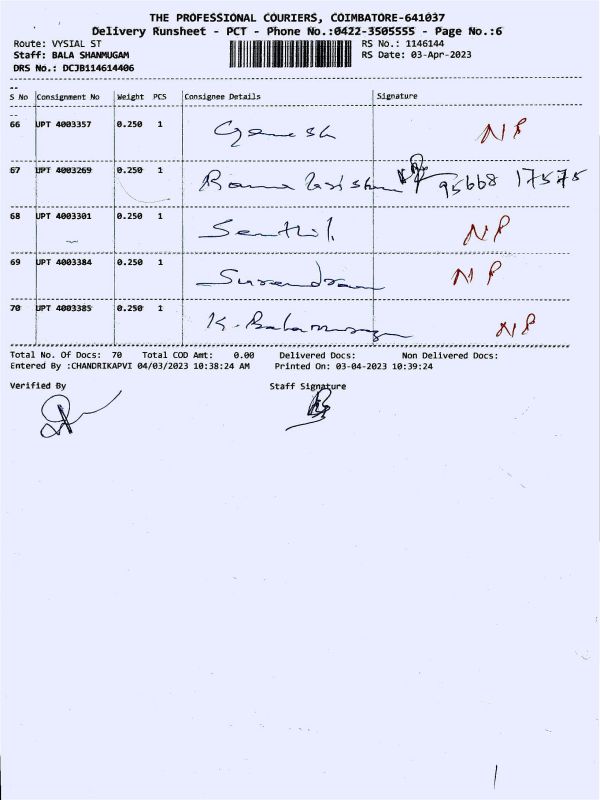 THE PROFESSIONAL COURIERS, COIMBATORE-641037
Delivery Runsheet - PCT - Phone No.:0422-3505555 - Page No.:6
Route: VYSIAL ST RS No.: 1146144
Staff: BALA SHANMUGAM RS Date: 03-Apr-2023
DRS No.: DCJB114614406
--
S No Consignment No Weight PCS Consignee Details Signature
--
66 UPT 4003357 0.250 1 Ganesh NP
67 UPT 4003269 0.250 1 Rama 95668 17575
68 UPT 4003301 0.250 1 Senthil NP
69 UPT 4003384 0.250 1 Surendran NP
70 UPT 4003385 0.250 1 K. Balamurugan NP
Total No. Of Docs: 70 Total COD Amt: 0.00 Delivered Docs: Non Delivered Docs:
Entered By :CHANDRIKAPVI 04/03/2023 10:38:24 AM Printed On: 03-04-2023 10:39:24
Verified By Staff Signature